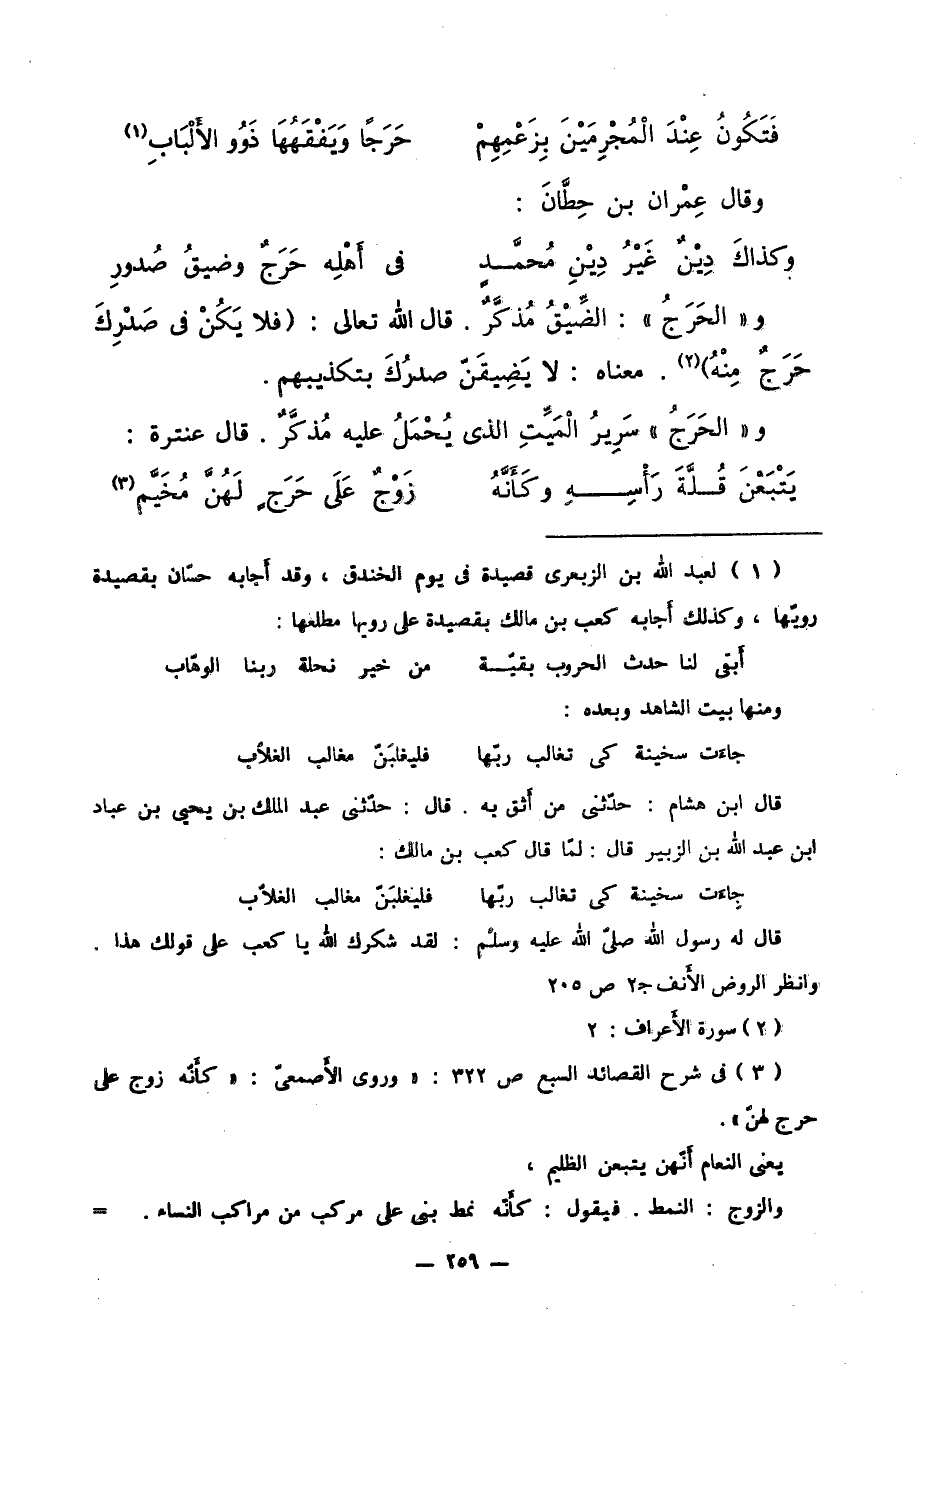 فَتَكُونُ عِنْدَ الْمُجْرِمَيْنَ بِزَعْمِهِمْ حَرَجًا وَيَفْقَهُهَا ذَوُو الأَلْبَابِ(١)
وقال عِمْران بن حِطَّانَ :
وكذاكَ دِيْنٌ غَيْرُ دِيْنِ مُحمَّـــدٍ فى أَهْلِه حَرَجٌ وضيقُ صُدورِ
و « الحَرَجُ » : الضَّيْقُ مُذكَّرٌ . قال الله تعالى : (فلا يَكُنْ فى صَدْرِكَ
حَرَجٌ مِنْهُ)(٢) . معناه : لا يَضِيقَنّ صدرُكَ بتكذيبهم .
و « الحَرَجُ » سَرِيرُ الْمَيِّتِ الذى يُحْمَلُ عليه مُذكَّرٌ . قال عنترة :
يَتْبَعْنَ قُــلَّةَ رَأْسِــــــهِ وكَأَنَّهُ زَوْجٌ عَلَى حَرَجٍ لَهُنَّ مُخَيَّمِ(٣)
( ١ ) لعبد الله بن الزبعرى قصيدة فى يوم الخندق ، وقد أجابه حسّان بقصيدة
رويّها ، وكذلك أجابه كعب بن مالك بقصيدة على رويها مطلعها :
أبقى لنا حدث الحروب بقيّــة من خير نحلة ربنا الوهّاب
ومنها بيت الشاهد وبعده :
جاءَت سخينة كى تغالب ربّها فليغلبَنّ مغالب الغلاَّب
قال ابن هشام : حدّثنى من أثق به . قال : حدّثنى عبد الملك بن يحيى بن عباد
ابن عبد الله بن الزبير قال : لمّا قال كعب بن مالك :
جاءَت سخينة كى تغالب ربّها فليغلبَنّ مغالب الغلاَّب
قال له رسول الله صلىّ الله عليه وسلّم : لقد شكرك الله يا كعب على قولك هذا .
وانظر الروض الأنف جـ٢ ص ٢٠٥
( ٢ ) سورة الأعراف : ٢
( ٣ ) فى شرح القصائد السبع ص ٣٢٢ : « وروى الأصمعىّ : « كأنّه زوج على
حرج لهنّ » .
يعنى النعام أنّهن يتبعن الظليم ،
والزوج : النمط . فيقول : كأنّه نمط بنى على مركب من مراكب النساء . =
— ٢٥٩ —